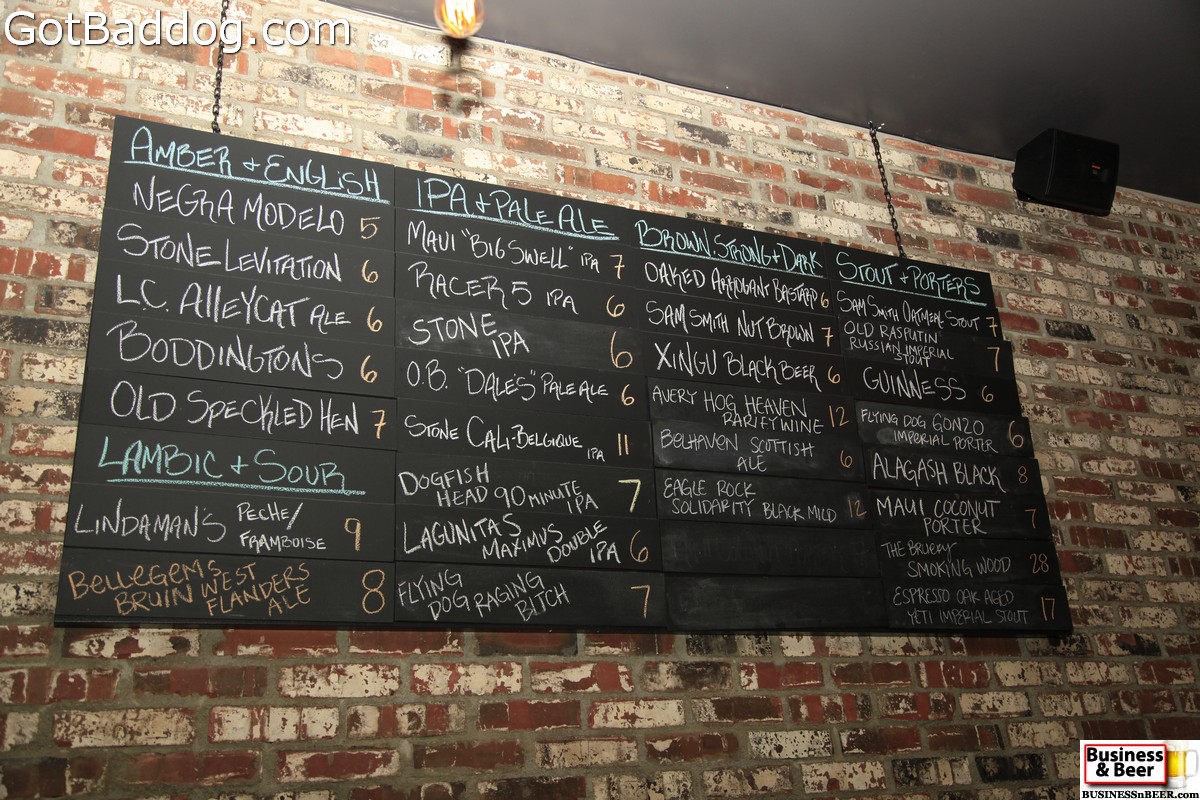 GotBaddog.com
AMBER + ENGLISH
NEGRA MODELO 5
STONE LEVITATION 6
L.C. ALLEYCAT ALE 6
BODDINGTONS 6
OLD SPECKLED HEN 7
LAMBIC + SOUR
LINDAMAN'S PECHE/
FRAMBOISE 9
BELLEGEMS
BRUIN WEST
FLANDERS
ALE 8
IPA + PALE ALE
MAUI "BIG SWELL" IPA 7
RACER 5 IPA 6
STONE
IPA 6
O.B. "DALE'S" PALE ALE 6
STONE CALI-BELGIQUE
IPA 11
DOGFISH
HEAD 90 MINUTE
IPA 7
LAGUNITAS
MAXIMUS DOUBLE
IPA 6
FLYING
DOG RAGING
BITCH 7
BROWN, STRONG + DARK
OAKED ARROGANT BASTARD 6
SAM SMITH NUT BROWN 7
XINGU BLACK BEER 6
AVERY HOG HEAVEN
BARLEYWINE 12
BELHAVEN SCOTTISH
ALE 6
EAGLE ROCK
SOLIDARITY BLACK MILD 12
STOUT + PORTERS
SAM SMITH OATMEAL STOUT 7
OLD RASPUTIN
RUSSIAN IMPERIAL
STOUT 7
GUINNESS 6
FLYING DOG GONZO
IMPERIAL PORTER 6
ALAGASH BLACK 8
MAUI COCONUT
PORTER 7
THE BRUERY
SMOKING WOOD 28
ESPRESSO OAK AGED
YETI IMPERIAL STOUT 17
Business
& Beer
BUSINESSnBEER.com